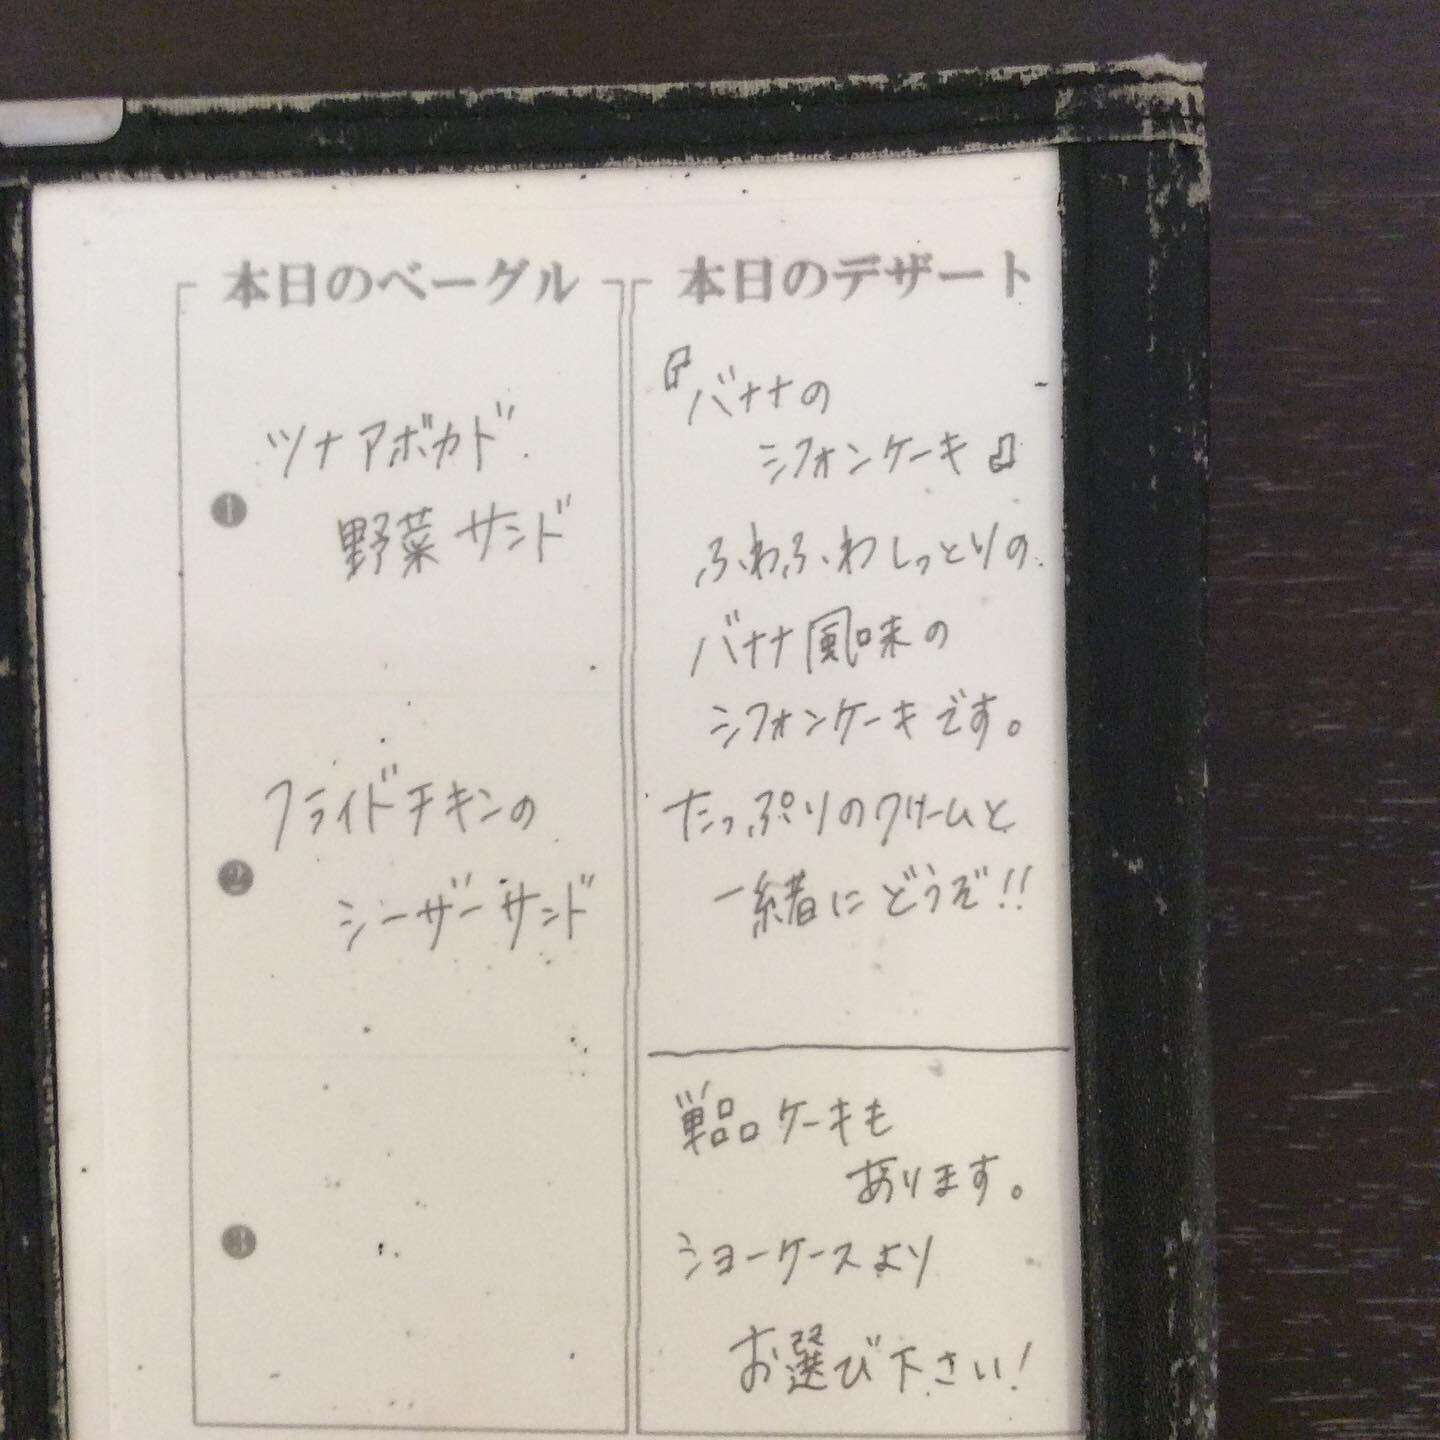 本日のベーグル
❶
ツナアボカド
野菜サンド
❷
フライドチキンの
シーザーサンド
❸
本日のデザート
『バナナの
シフォンケーキ』
ふわふわしっとりの
バナナ風味の
シフォンケーキです。
たっぷりのクリームと
一緒にどうぞ!!
単品ケーキも
あります。
ショーケースより
お選び下さい!